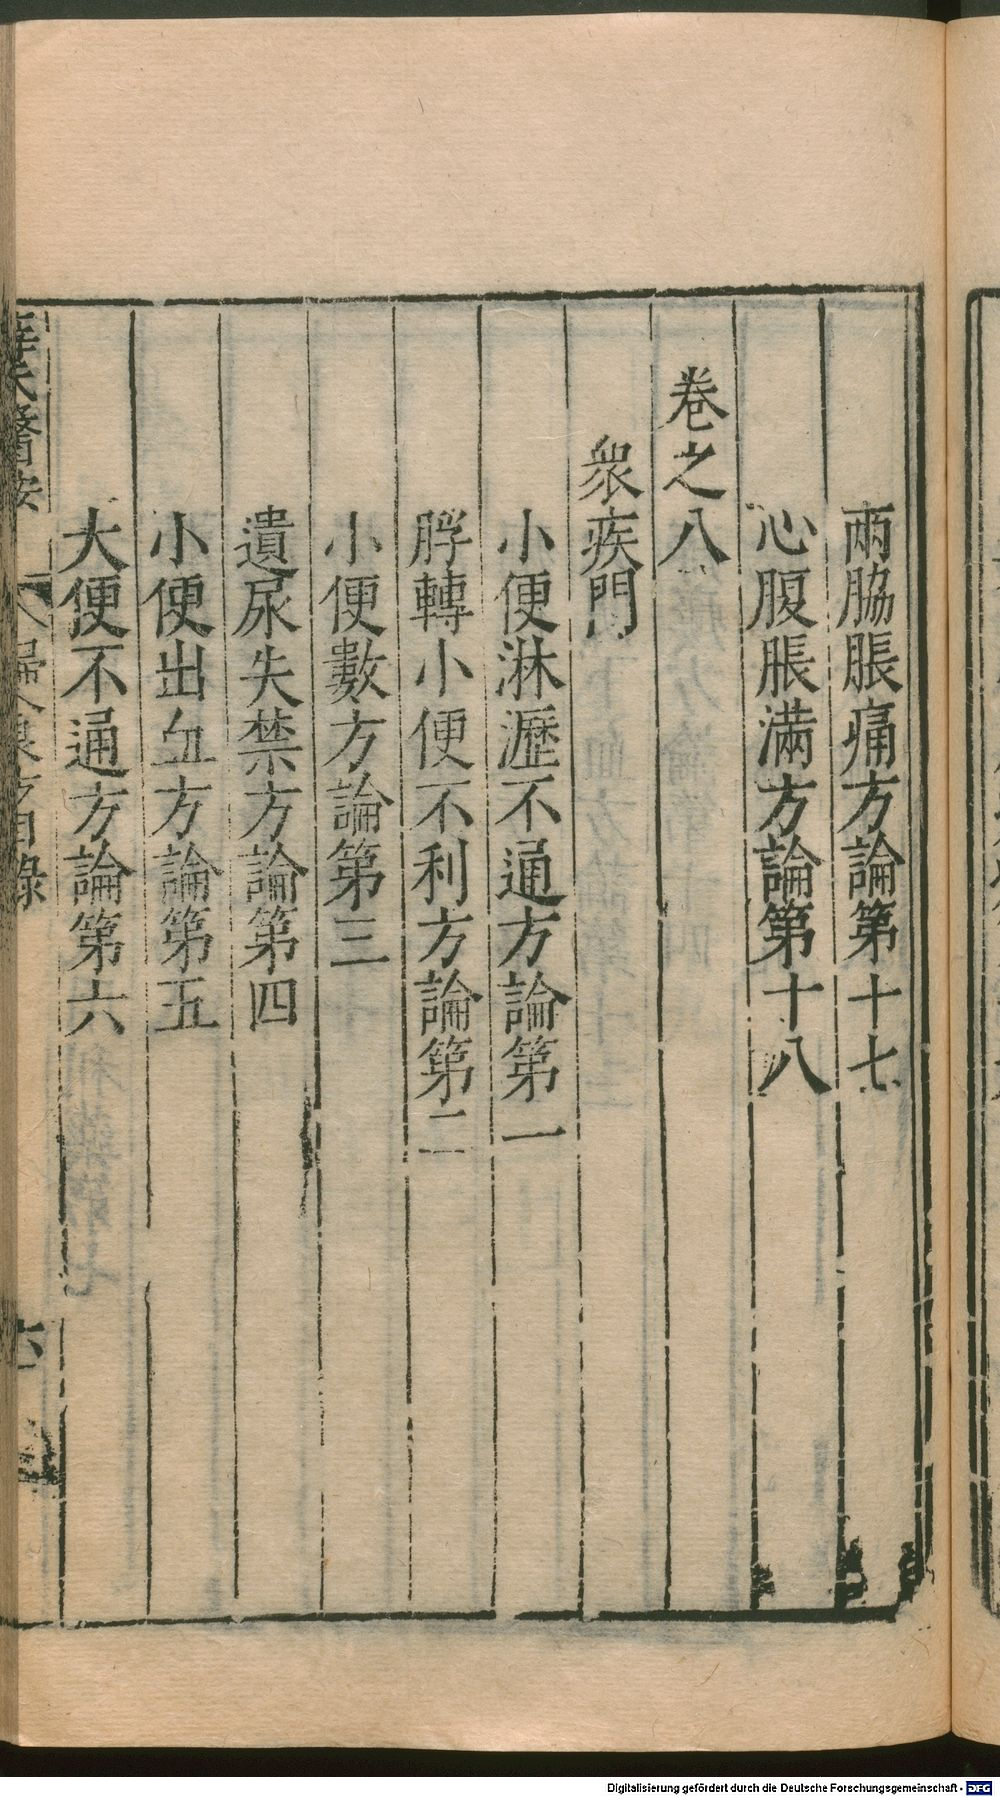 兩脇脹痛方論第十七
心腹脹滿方論第十八
卷之八
衆疾門
小便淋瀝不通方論第一
脬轉小便不利方論第二
小便數方論第三
遺尿失禁方論第四
小便出血方論第五
大便不通方論第六
Digitalisierung gefördert durch die Deutsche Forschungsgemeinschaft - DFG